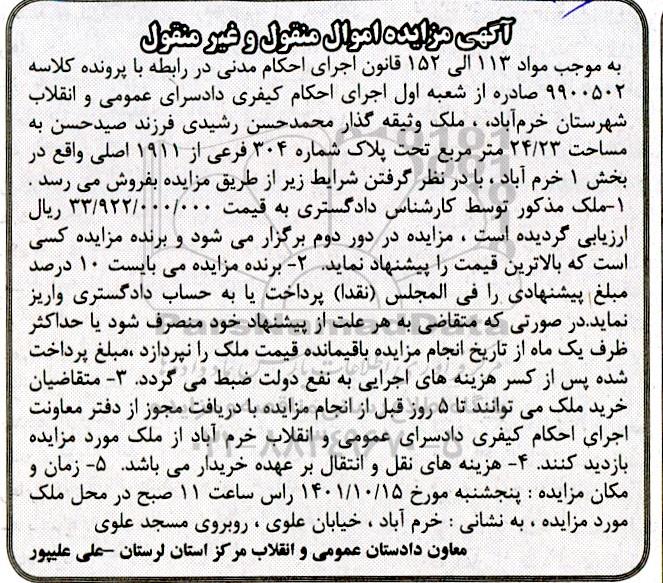 آگهی مزایده اموال منقول و غیر منقول
به موجب مواد ۱۱۳ الی ۱۵۲ قانون اجرای احکام مدنی در رابطه با پرونده کلاسه
۹۹۰۰۵۰۲ صادره از شعبه اول اجرای احکام کیفری دادسرای عمومی و انقلاب
شهرستان خرم‌آباد، ، ملک وثیقه گذار محمدحسن رشیدی فرزند صیدحسن به
مساحت ۲۴/۲۳ متر مربع تحت پلاک شماره ۳۰۴ فرعی از ۱۹۱۱ اصلی واقع در
بخش ۱ خرم آباد ، با در نظر گرفتن شرایط زیر از طریق مزایده بفروش می رسد .
۱-ملک مذکور توسط کارشناس دادگستری به قیمت ۳۳/۹۲۲/۰۰۰/۰۰۰ ریال
ارزیابی گردیده است ، مزایده در دور دوم برگزار می شود و برنده مزایده کسی
است که بالاترین قیمت را پیشنهاد نماید. ۲- برنده مزایده می بایست ۱۰ درصد
مبلغ پیشنهادی را فی المجلس (نقدا) پرداخت یا به حساب دادگستری واریز
نماید.در صورتی که متقاضی به هر علت از پیشنهاد خود منصرف شود یا حداکثر
ظرف یک ماه از تاریخ انجام مزایده باقیمانده قیمت ملک را نپردازد ،مبلغ پرداخت
شده پس از کسر هزینه های اجرایی به نفع دولت ضبط می گردد. ۳- متقاضیان
خرید ملک می توانند تا ۵ روز قبل از انجام مزایده با دریافت مجوز از دفتر معاونت
اجرای احکام کیفری دادسرای عمومی و انقلاب خرم آباد از ملک مورد مزایده
بازدید کنند. ۴- هزینه های نقل و انتقال بر عهده خریدار می باشد. ۵- زمان و
مکان مزایده : پنجشنبه مورخ ۱۴۰۱/۱۰/۱۵ راس ساعت ۱۱ صبح در محل ملک
مورد مزایده ، به نشانی : خرم آباد ، خیابان علوی ، روبروی مسجد علوی
معاون دادستان عمومی و انقلاب مرکز استان لرستان –علی علیپور